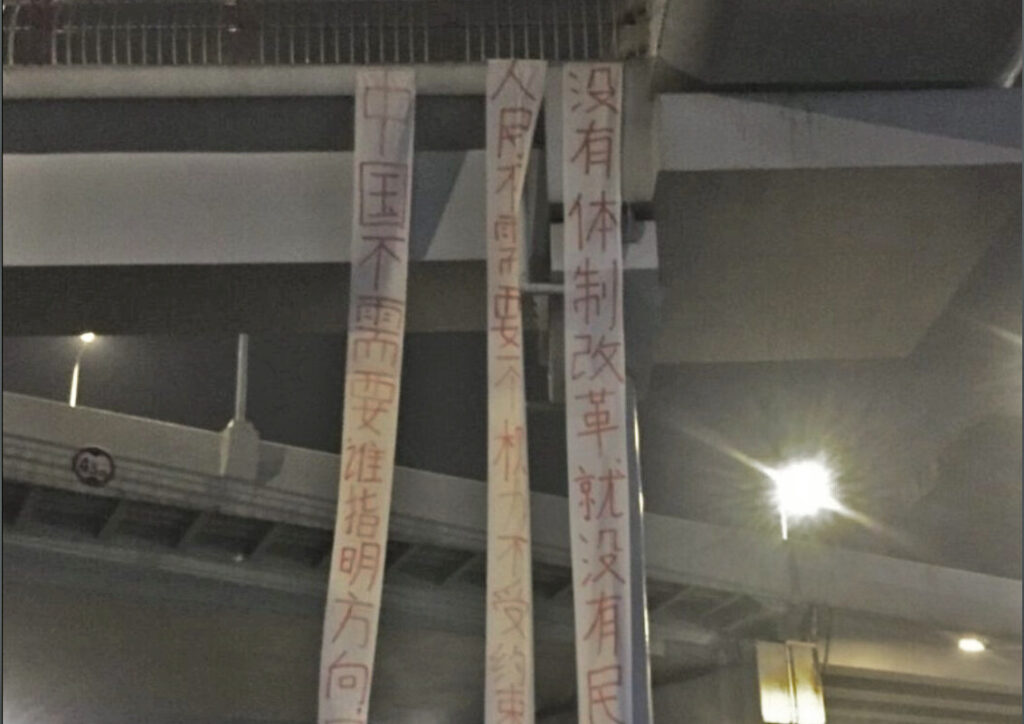 没有体制改革，就没有民
人民不需要一个权力不受约束
中国不需要谁指明方向